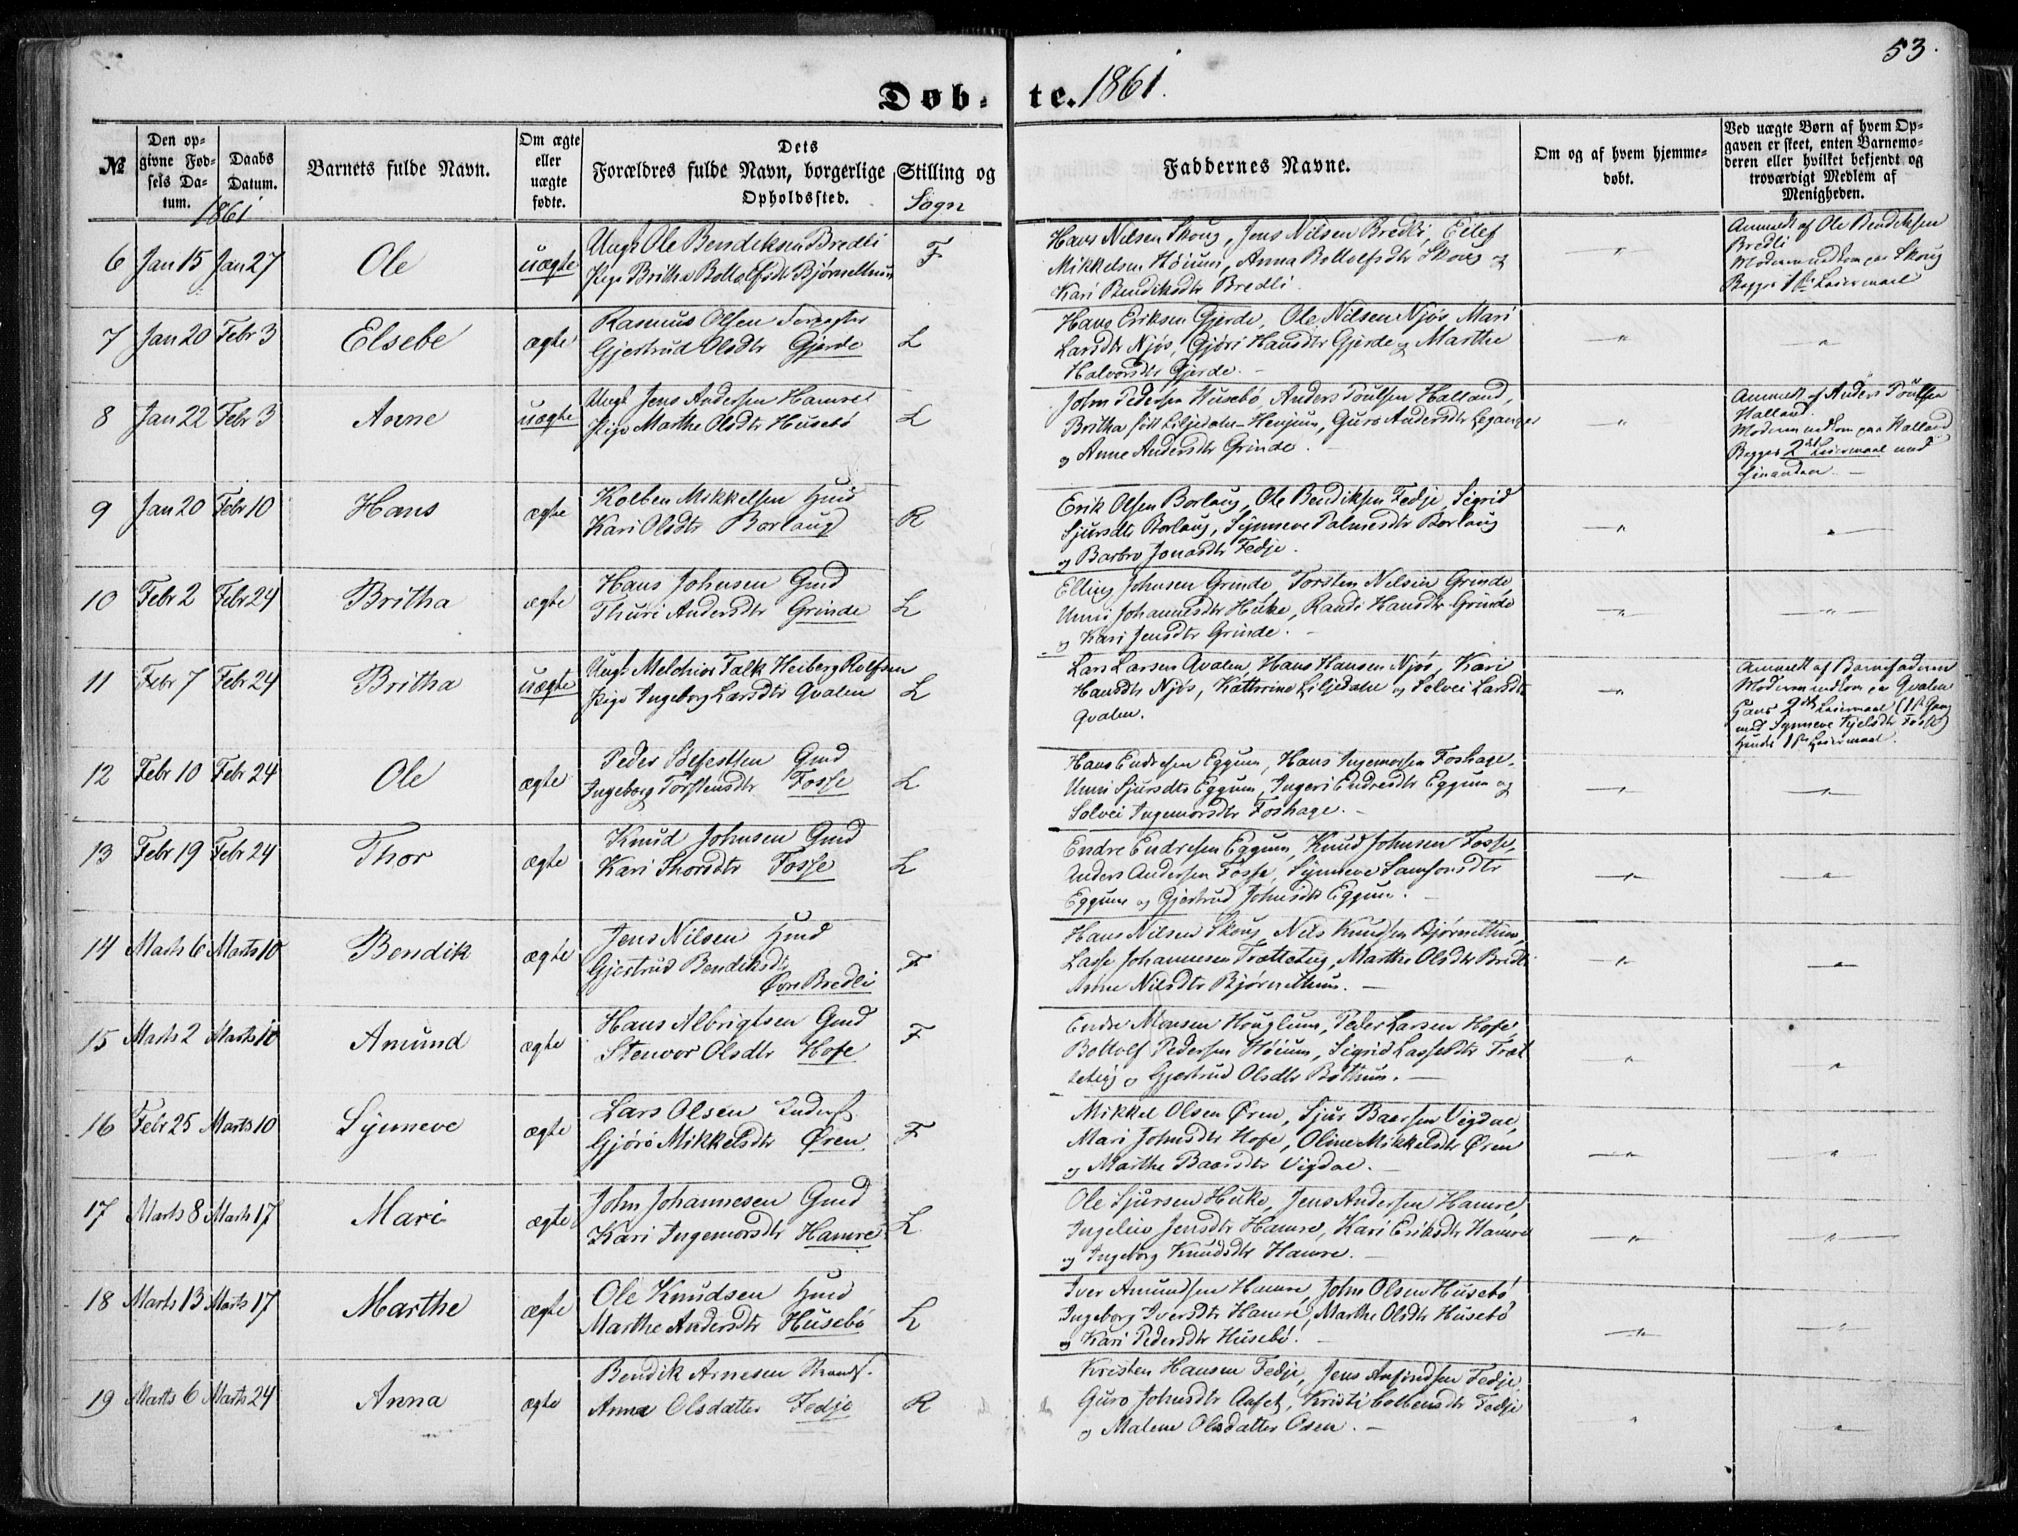 53.
Døb-te. 1861.
№
Den opgivne Fødsels Datum.
Daabs Datum.
1861
Barnets fulde Navn.
Om ægte eller uægte fødte.
Dets Forældres fulde Navn, borgerlige Stilling og Opholdssted.
Sogn
Faddernes Navne.
Om og af hvem hjemmedøbt.
Ved uægte Børn af hvem Opgaven er skeet, enten Barnemoderen eller hvilket bekjendt og troværdigt Medlem af Menigheden.
6 Jan 15 Jan 27 Ole uægte
Ungk Ole Bendiksen Bredli
Pige Britha Bottolfsdt Bjørnethun
F
Hans Nilsen Skoug, Jens Nilsen Bredli, Eilef
Mikkelsen Høium, Anna Bottolfsdt Skoug og
Kari Bendiksdtr Bredli.
Anmeldt af Ole Bendiksen
Bredli
Moderen paa Skoug
Begges 1ste Leiermaal
7 Jan 20 Febr 3 Elsebe ægte
Rasmus Olsen
Gjertrud Olsdtr Gjerde
L
Hans Eriksen Gjerde, Ole Nilsen Njøs, Mari
Larsdtr Njøs, Gjøri Hansdtr Gjerde og Marthe
Halvorsdtr Gjerde.
8 Jan 22 Febr 3 Anne uægte
Ungk Jens Andersen Hamre
Pige Marthe Olsdtr Husebø
L
John Pedersen Husebø, Anders Poulsen Halland,
Britha født Liljedalen Henjum, Guro Andersdtr Leganger
og Anne Andersdtr Grinde.
Anmeldt af Anders Poulsen
Halland.
Moderen paa Halland
Begges 2det Leiermaal med
hinanden
9 Jan 20 Febr 10 Hans ægte
Kolben Mikkelsen Hmd
Kari Olsdtr Borlaug
R
Erik Olsen Borlaug, Ole Bendiksen Fedje, Sigrid
Sjursdtr Borlaug, Synneve Palmesdtr Borlaug
og Barbro Jonasdtr Fedje.
10 Febr 2 Febr 24 Britha ægte
Hans Johnsen Gmd
Thuri Andersdtr Grinde
L
Elling Johnsen Grinde, Torsten Nelsen Grinde,
Unni Johannesdtr Huke, Randi Hansdtr Grinde
og Kari Jensdtr Grinde.
11 Febr 7 Febr 24 Britha uægte
Ungk Melchior Falk Heiberg Rolfsen
Pige Ingeborg Larsdtr Qvalen
L
Lars Larsen Qvalen, Hans Hansen Njøs, Kari
Hansdtr Njøs, Kathrine Liljedalen og Solvei Larsdtr
Qvalen.
Anmeldt af Barnefaderen
Moderen paa Qvalen
Hans 2det Leiermaal (1ste Gang
med Synneve Kjelsdtr Fosse)
Hendes 1ste Leiermaal.
12 Febr 10 Febr 24 Ole ægte
Peder Gmd
Ingeborg Torstensdtr Fosse
L
Hans Endresen Eggum, Hans Ingemorsen Foshage,
Unni Sjursdtr Eggum, Ingeri Endresdtr Eggum og
Solvei Ingemorsdtr Foshage.
13 Febr 19 Febr 24 Thor ægte
Knud Johnsen Gmd
Kari Thorsdtr Fosse
L
Endre Endresen Eggum, Knud Johnsen Fosse,
Anders Andersen Fosse, Synneve Samsonsdtr
Eggum og Gjertrud Johnsdtr Eggum.
14 Marts 6 Marts 10 Bendik ægte
Jens Nilsen Hmd
Gjertrud Bendiksdtr
Øvre Bredli
F
Hans Nilsen Skoug, Nils Knudsen Bjørnethun,
Lasse Johannesen Trætteteig, Marthe Olsdtr Bredli
Anne Nilsdtr Bjørnethun.
15 Marts 2 Marts 10 Amund ægte
Hans Albrigtsen Gmd
Stenvor Olsdtr Hofe
F
Endre Monsen Houglum, Peder Larsen Hofe,
Bottolf Pedersen Høium, Sigrid Lassesdtr Træt
teteig og Gjertrud Olsdtr Bøthun.
16 Febr 25 Marts 10 Synneve ægte
Lars Olsen Inderst
Gjøri Mikkelsdtr Øren
F
Mikkel Olsen Øren, Sjur Baarsen Vigdal,
Mari Johnsdtr Hofe, Oline Mikkelsdtr Øren
og Marthe Baarsdtr Vigdal.
17 Marts 8 Marts 17 Mari ægte
John Johannesen Gmd
Kari Ingemorsdtr Hamre
L
Ole Sjursen Huke, Jens Andersen Hamre,
Ingeleiv Jensdtr Hamre, Kari Eriksdtr Hamre
og Ingeborg Knudsdtr Hamre.
18 Marts 13 Marts 17 Marthe ægte
Ole Knudsen Hmd
Marthe Andersdtr Husebø
L
Iver Amundsen Hamre, John Olsen Husebø
Ingeborg Iversdtr Hamre, Marthe Olsdtr Husebø
og Kari Pedersdtr Husebø.
19 Marts 6 Marts 24 Anna ægte
Bendik Arnesen Strands.
Anna Olsdatter Fedje
R
Kristen Hansen Fedje, Jens Anfindsen Fedje
Guro Johnsdtr Aafet, Kristi Colbensdtr Fedje
og Malene Olsdatter Osen.